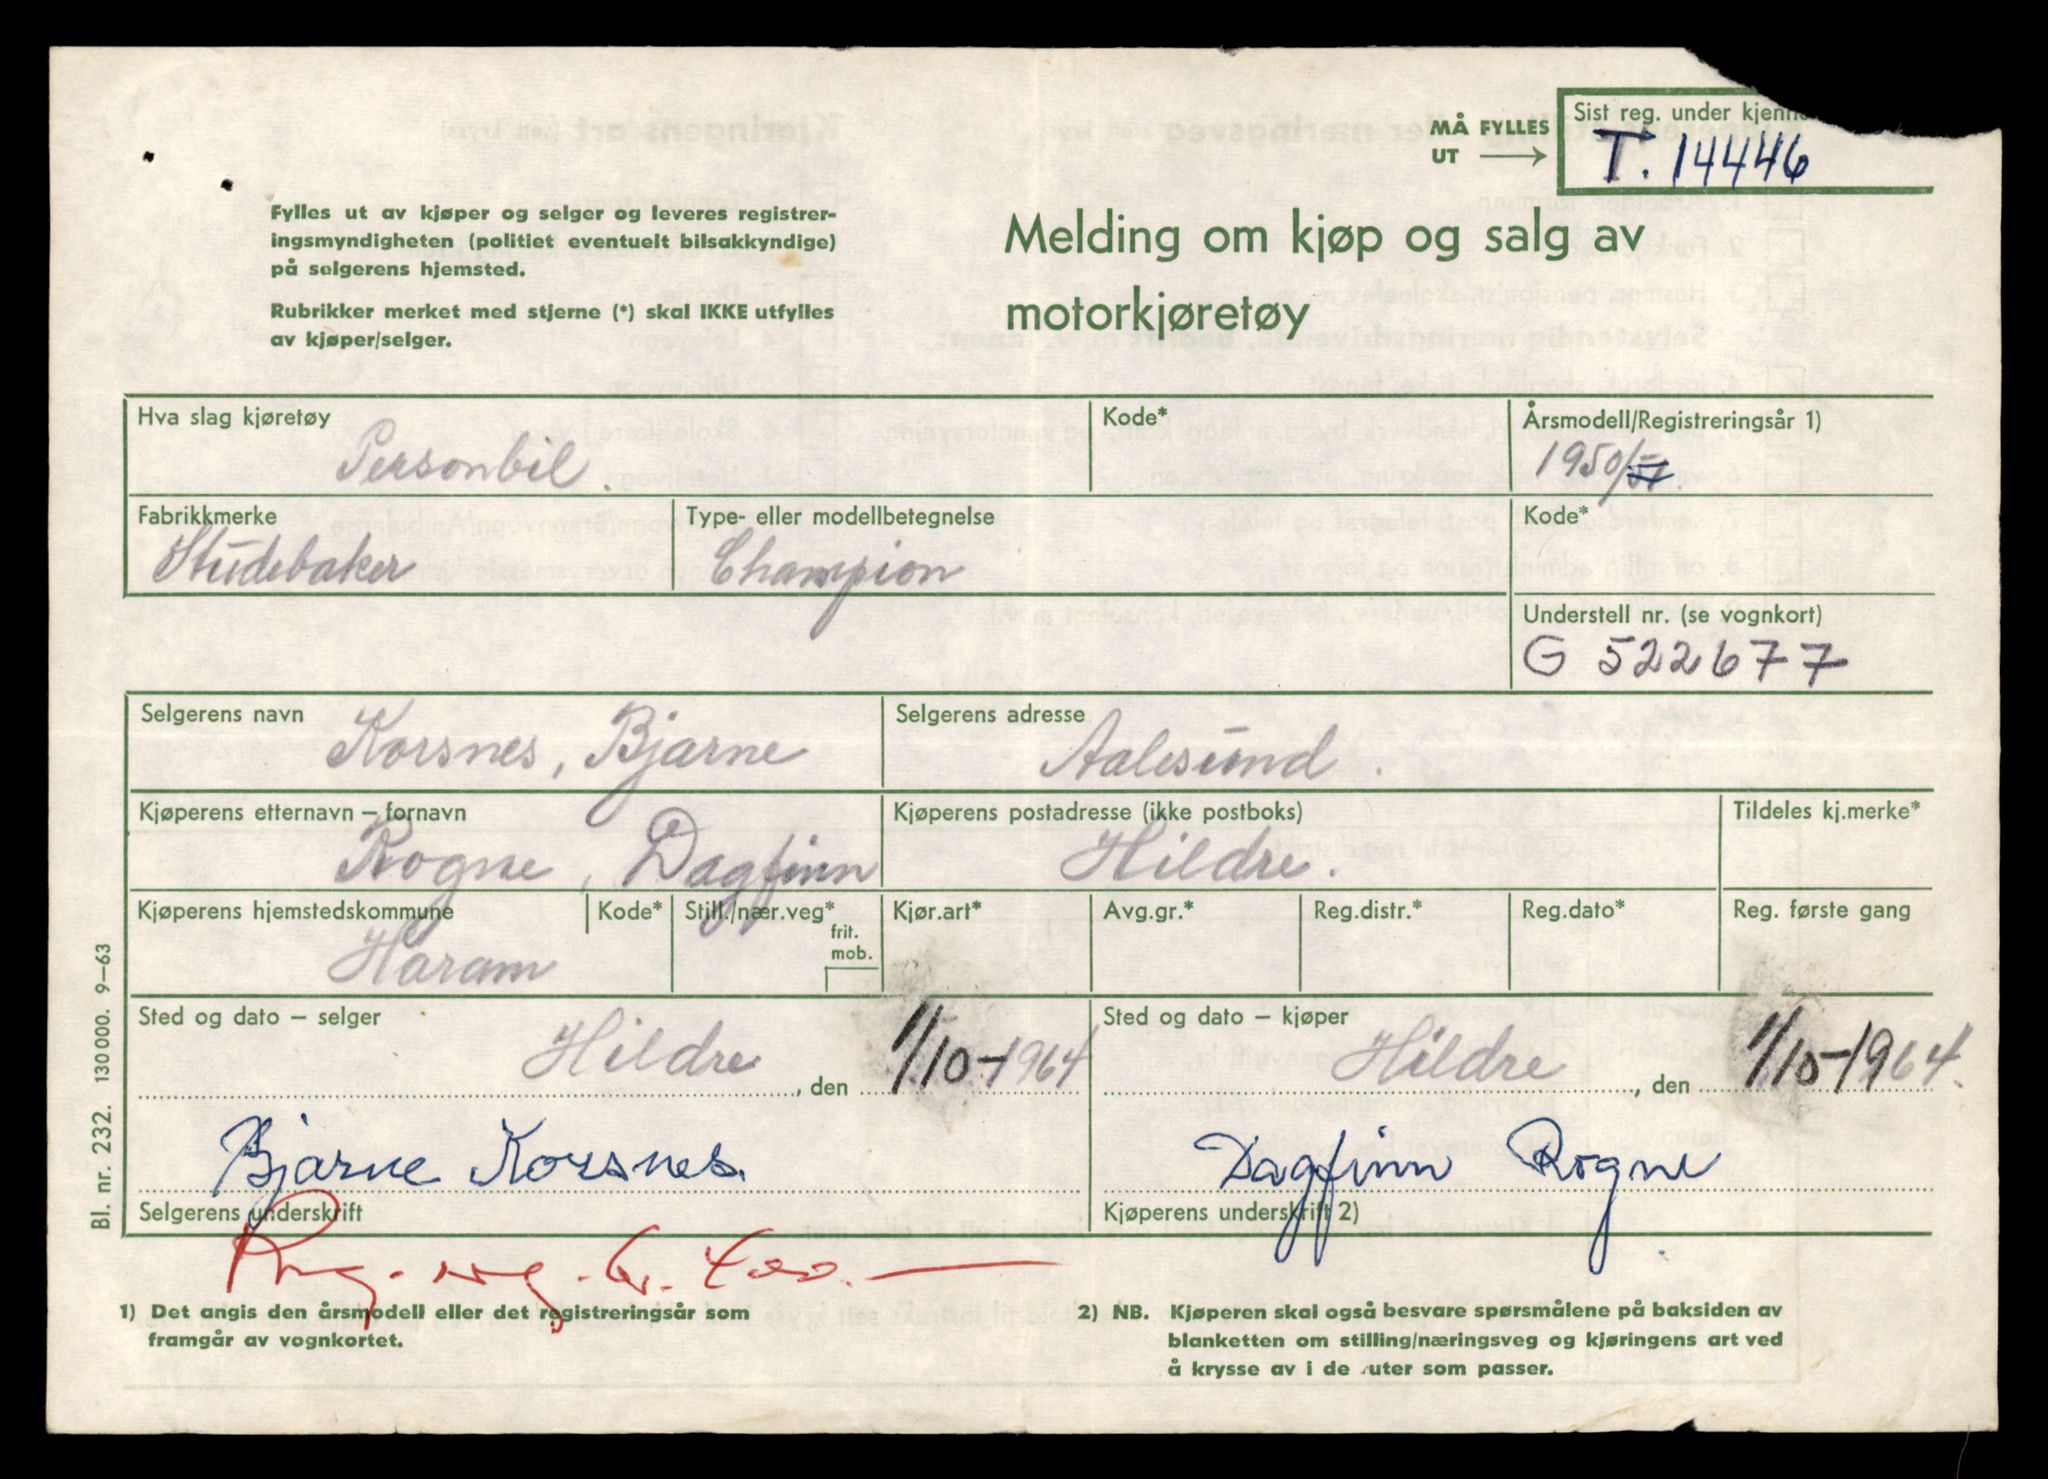 MÅ FYLLES
UT →
Sist reg. under kjenne
T. 14446
Fylles ut av kjøper og selger og leveres registrer-
ingsmyndigheten (politiet eventuelt bilsakkyndige)
på selgerens hjemsted.
Rubrikker merket med stjerne (*) skal IKKE utfylles
av kjøper/selger.
Melding om kjøp og salg av
motorkjøretøy
Hva slag kjøretøy
Personbil.
Kode*
Årsmodell/Registreringsår 1)
1950/51.
Fabrikkmerke
Studebaker
Type- eller modellbetegnelse
Champion
Kode*
Understell nr. (se vognkort)
G 522677
Selgerens navn
Korsnes, Bjarne
Selgerens adresse
Aalesund.
Kjøperens etternavn – fornavn
Rogne, Dagfinn
Kjøperens postadresse (ikke postboks)
Hildre.
Tildeles kj.merke*
Kjøperens hjemstedskommune
Haram
Kode*
Still./nær.veg*
frit.
mob.
Kjør.art*
Avg.gr.*
Reg.distr.*
Reg.dato*
Reg. første gang
Sted og dato – selger
Hildre, den 1/10-1964
Sted og dato – kjøper
Hildre, den 1/10-1964.
Bjarne Korsnes.
Selgerens underskrift
Dagfinn Rogne
Kjøperens underskrift 2)
Bl. nr. 232. 130 000. 9–63
1) Det angis den årsmodell eller det registreringsår som
framgår av vognkortet.
2) NB. Kjøperen skal også besvare spørsmålene på baksiden av
blanketten om stilling/næringsveg og kjøringens art ved
å krysse av i de ruter som passer.